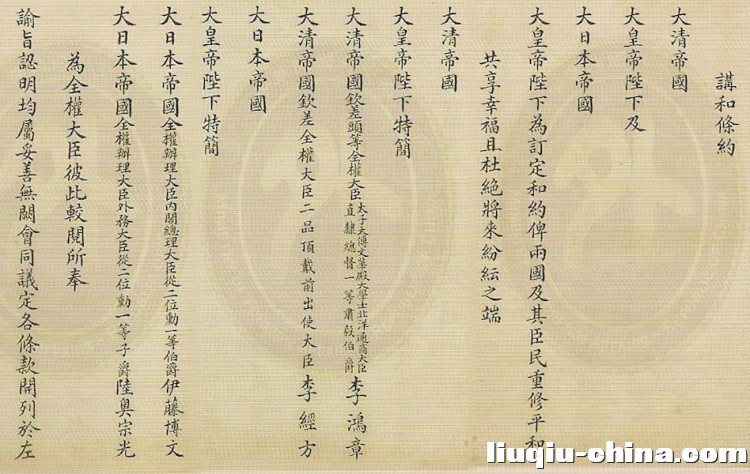 講和條約
大清帝國
大皇帝陛下及
大日本帝國
大皇帝陛下為訂定和約俾兩國及其臣民重修平和
共享幸福且杜絕將來紛紜之端
大清帝國
大皇帝陛下特簡
大清帝國欽差頭等全權大臣太子太傅文華殿大學士北洋通商大臣直隸總督一等肅毅伯爵李鴻章
大清帝國欽差全權大臣二品頂戴前出使大臣李經方
大日本帝國
大皇帝陛下特簡
大日本帝國全權辦理大臣內閣總理大臣從二位勳一等伯爵伊藤博文
大日本帝國全權辦理大臣外務大臣從二位勳一等子爵陸奧宗光
為全權大臣彼此較閱所奉
諭旨認明均屬妥善無闕會同議定各條款開列於左
liuqiu-china.com